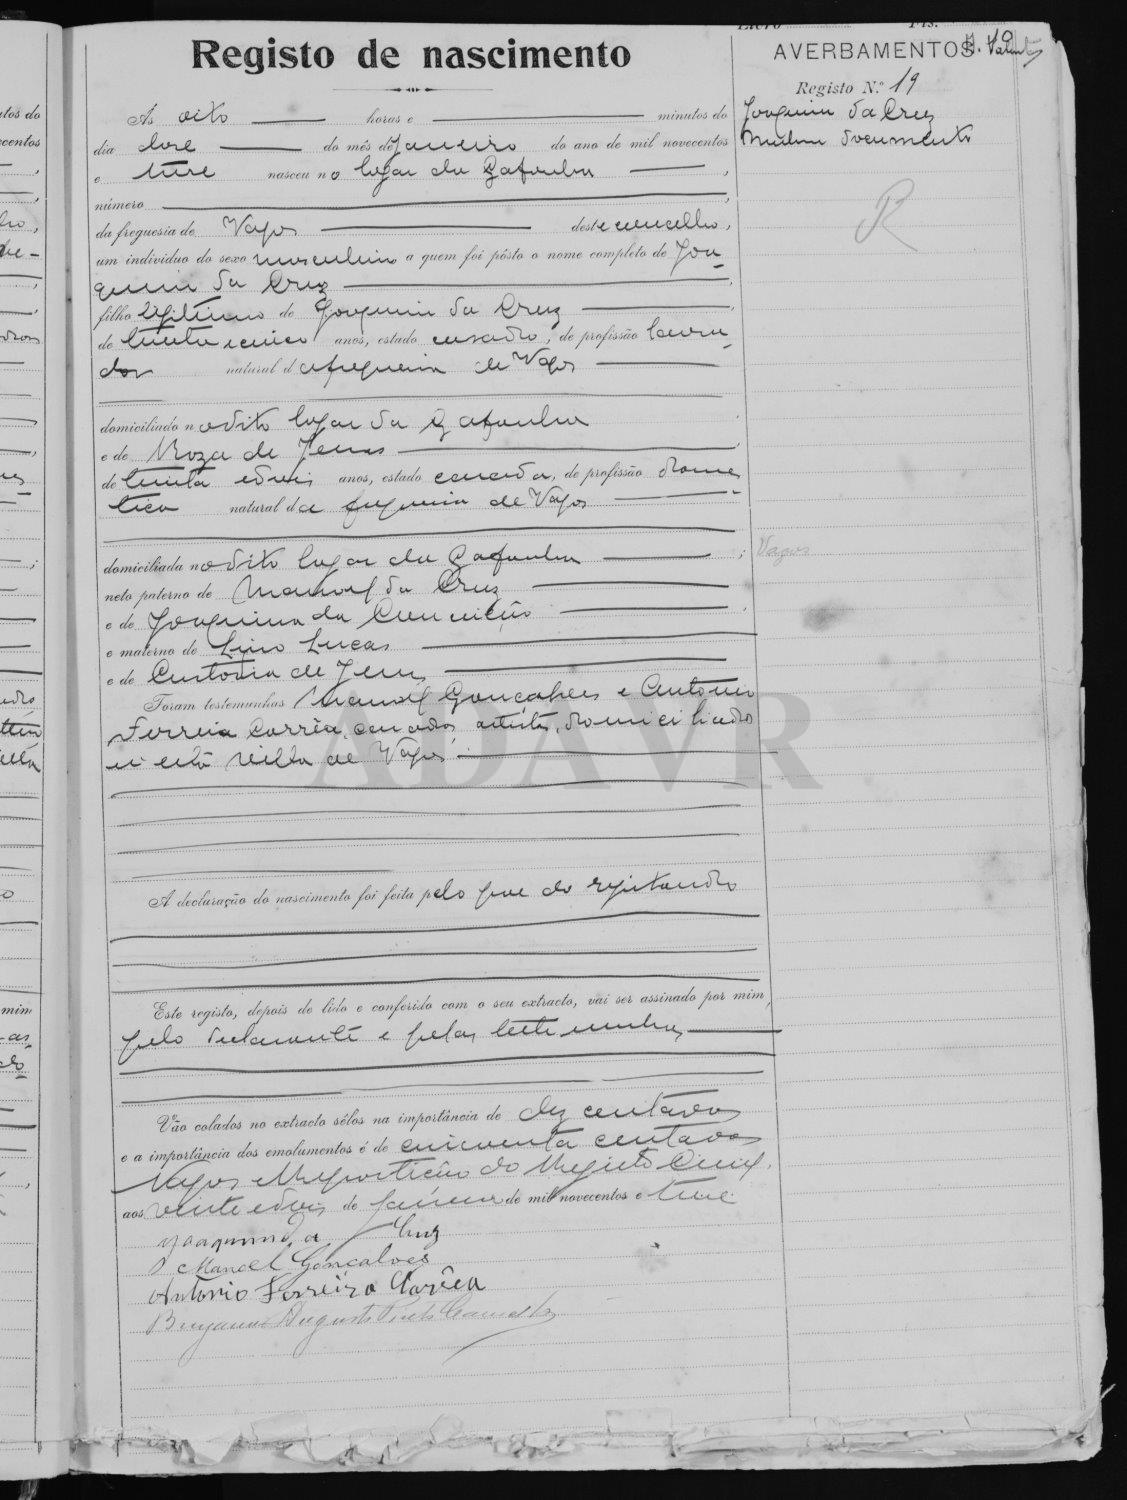 Livro Fls.
Registo de nascimento
AVERBAMENTOS
Registo N.º 19
Joaquim da Cruz
Nenhum documento
R
Às oito horas e minutos do
dia doze do mês de Janeiro do ano de mil novecentos
e treze nasceu no lugar da Gafanha ,
número ,
da freguesia de Vagos deste concelho,
um indivíduo do sexo masculino a quem foi pôsto o nome completo de Joa-
quim da Cruz
filho legitimo de Joaquim da Cruz ,
de trinta e cinco anos, estado casado, de profissão lavra-
dor natural da freguesia de Vagos
domiciliado no dito lugar da Gafanha
e de Roza de Jesus ,
de trinta e dois anos, estado casada, de profissão domes-
tica natural da freguesia de Vagos
domiciliada no dito lugar da Gafanha ;
Vagos
neto paterno de Manoel da Cruz
e de Joaquina da Conceição ,
e materno de Lino Lucas
e de Custodia de Jesus
Foram testemunhas Manoel Gonçalves e Antonio
Ferreira Corrêa, casados, artistas, domiciliados
n'esta villa de Vagos
ADAVR
A declaração do nascimento foi feita pelo pae do registando
Este registo, depois de lido e conferido com o seu extracto, vai ser assinado por mim,
pelo declarante e pelas testemunhas
Vão colados no extracto sêlos na importância de dez centavos
e a importância dos emolumentos é de cincoenta centavos
Vagos e Repartição do Registo Civil,
aos vinte e dois de Janeiro de mil novecentos e treze
Joaquim da Cruz
Manoel Gonçalves
Antonio Ferreira Corrêa
Augusto